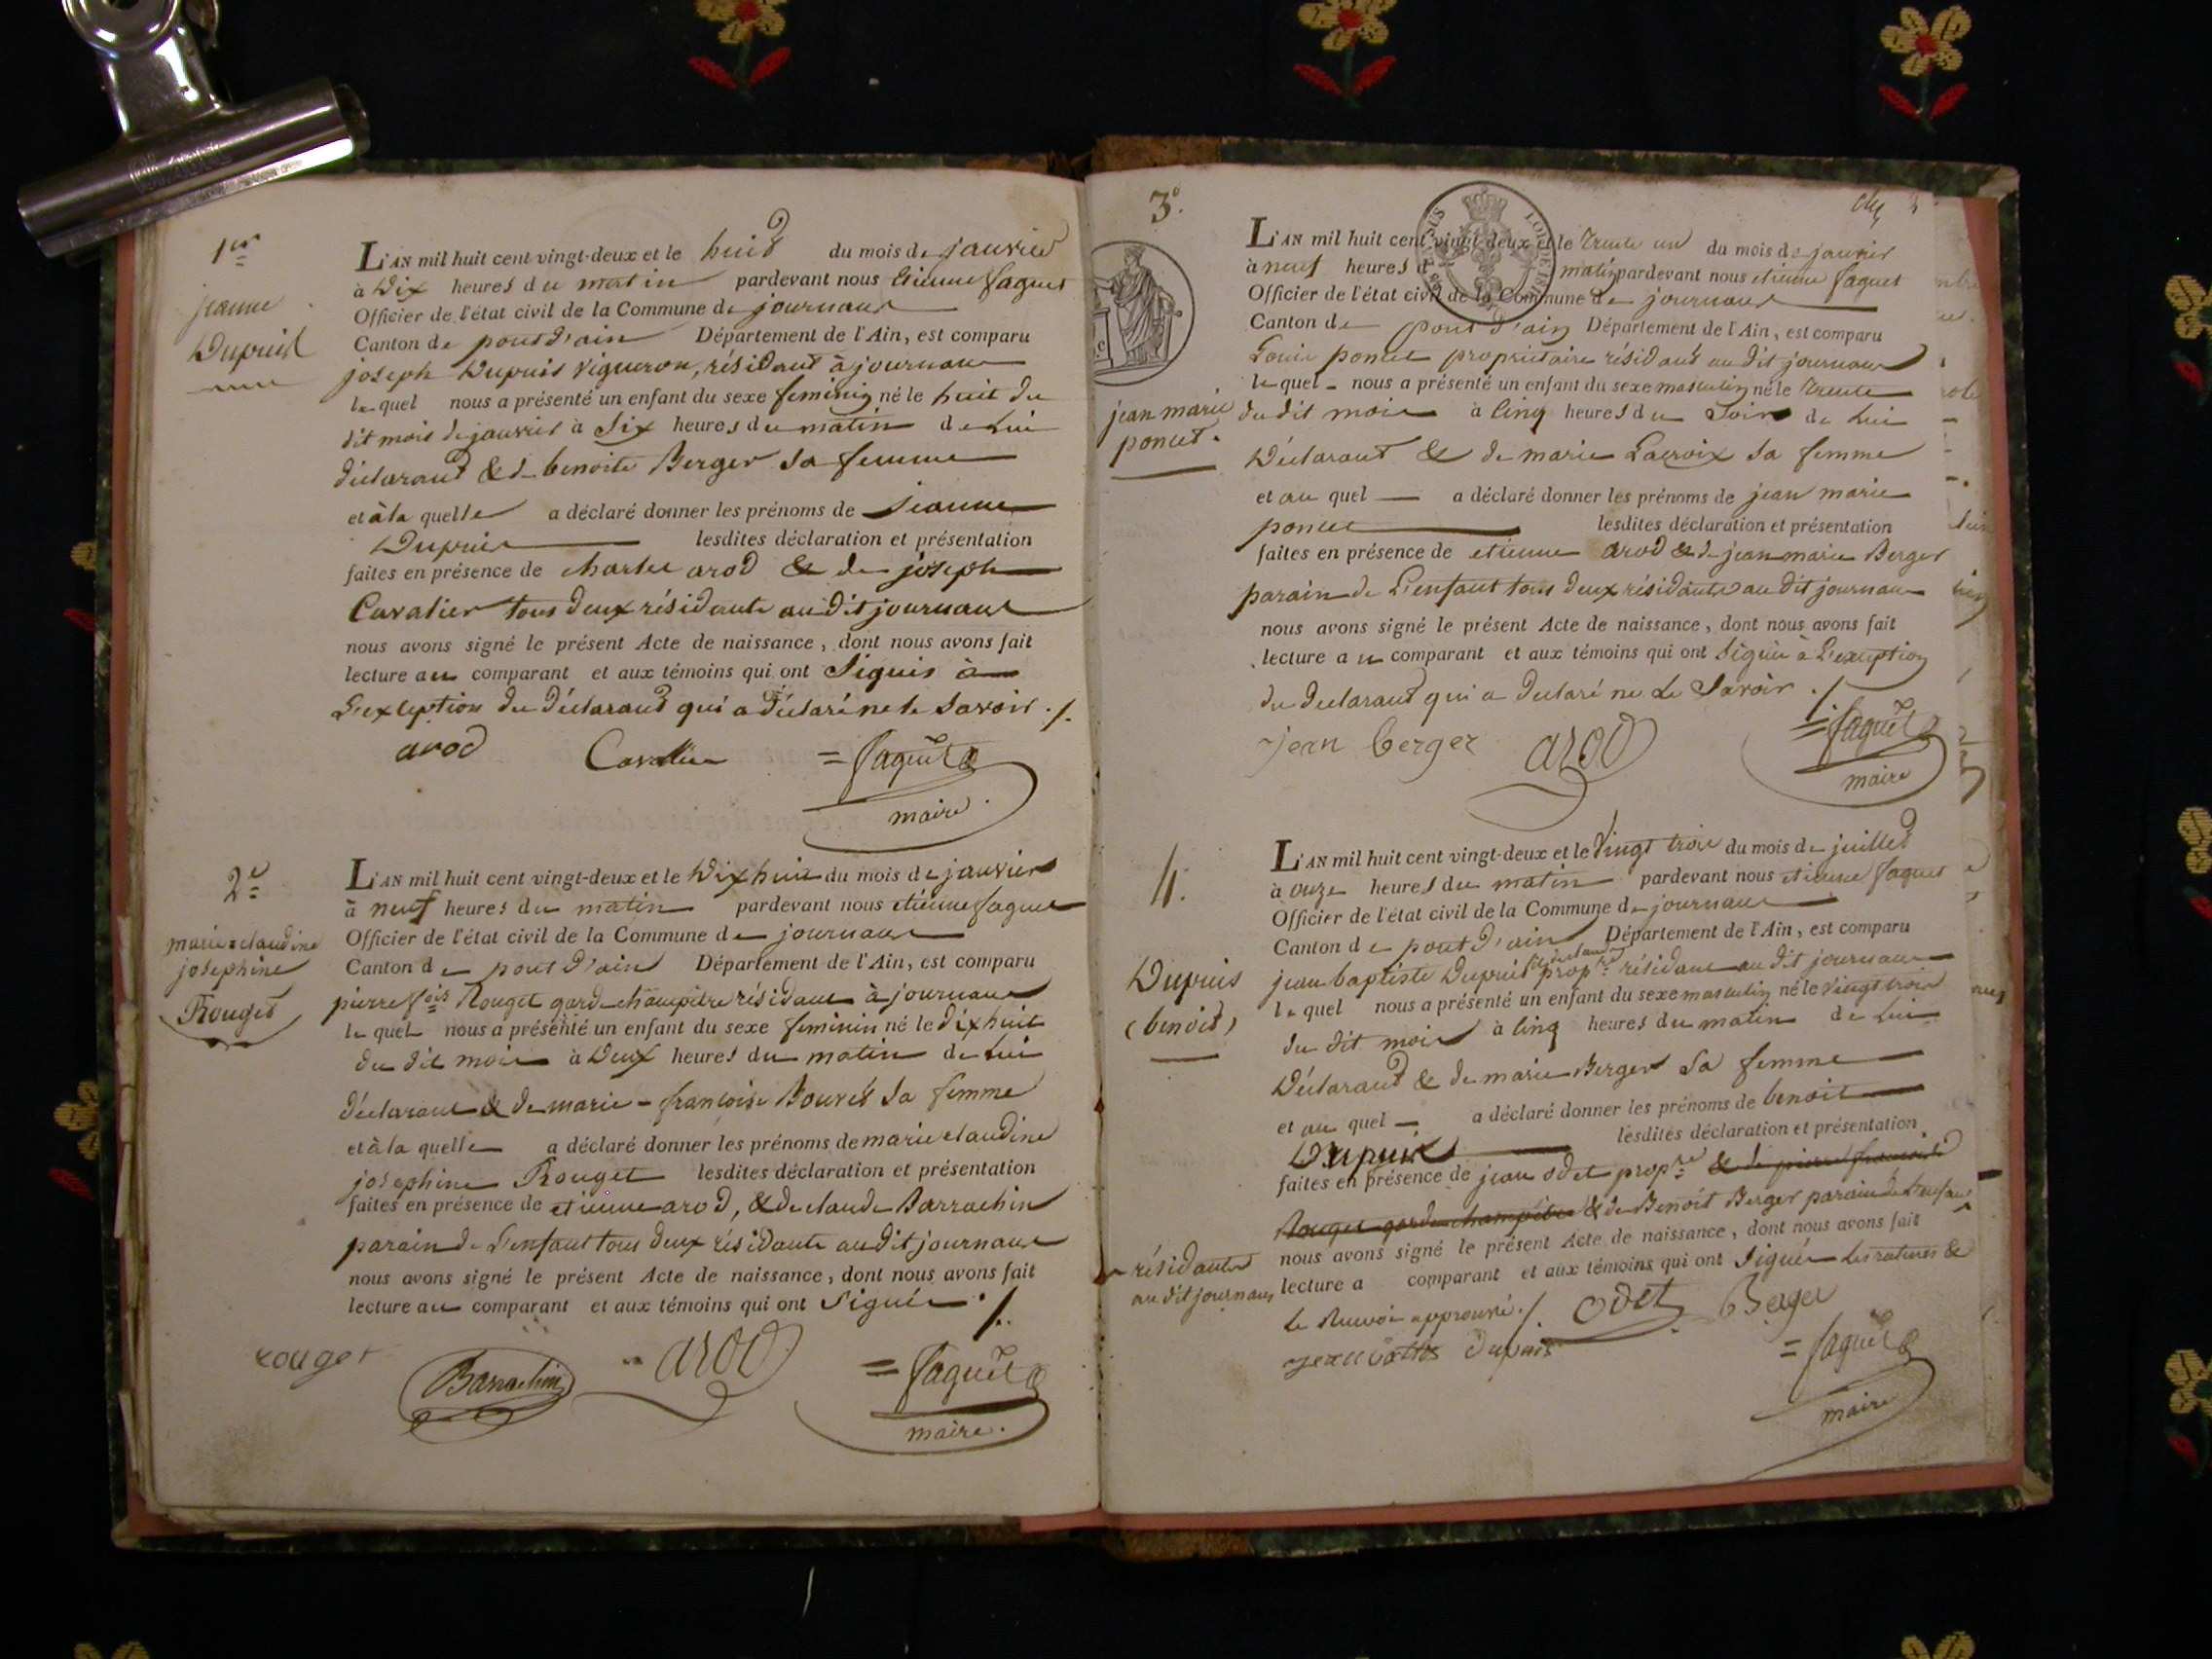 1er
jeanne
Dupuis
L'AN mil huit cent vingt-deux et le huit du mois de janvier
à Dix heures du matin pardevant nous Etienne faguet
Officier de l'état civil de la Commune de journans
Canton de pont d'ain Département de l'Ain, est comparu
joseph Dupuis vigneron, résidant à journans
lequel nous a présenté un enfant du sexe feminin né le huit du
dit mois de janvier à Six heures du matin de Lui
déclarant & de benoite Berger sa femme
et à la quelle a déclaré donner les prénoms de jeanne
Dupuis lesdites déclaration et présentation
faites en présence de charles arod & de joseph
Cavalier tous deux résidants au dit journans
nous avons signé le présent Acte de naissance, dont nous avons fait
lecture au comparant et aux témoins qui ont Signés à
L'exception du Déclarant qui a déclaré ne le Savoir ./.
arod Cavallier = faguet
maire
2e
marie=claudine
josephine
Rouget
L'AN mil huit cent vingt-deux et le Dix huit du mois de janvier
à neuf heures du matin pardevant nous etienne faguet
Officier de l'état civil de la Commune de journans
Canton de pont d'ain Département de l'Ain, est comparu
pierre fois Rouget garde champêtre résidant à journans
le quel nous a présenté un enfant du sexe feminin né le dix huit
du dit mois à Deux heures du matin de Lui
déclarant & de marie=francoise sa femme
et à la quelle a déclaré donner les prénoms de marie claudine
josephine Rouget lesdites déclaration et présentation
faites en présence de etienne arod, & de claude Barrachin
parain de L'enfant tous deux résidants au dit journans
nous avons signé le présent Acte de naissance, dont nous avons fait
lecture au comparant et aux témoins qui ont Signés ./.
rouget Barrachin arod = faguet
maire.
3°.
jean marie
poncet.
L'AN mil huit cent vingt-deux et le trente un du mois de janvier
à neuf heures du matin pardevant nous etienne faguet
Officier de l'état civil de la Commune de journans
Canton de pont d'ain Département de l'Ain, est comparu
Louis poncet propriétaire résidant au dit journans
le quel nous a présenté un enfant du sexe masculin né le trente
du dit mois à Cinq heures du Soir de Lui
Déclarant & de marie Lacroix sa femme
et au quel a déclaré donner les prénoms de jean marie
poncet lesdites déclaration et présentation
faites en présence de etienne arod & de jean marie Berger
parain de L'enfant tous deux résidants au dit journans
nous avons signé le présent Acte de naissance, dont nous avons fait
lecture au comparant et aux témoins qui ont Signés à L'exception
du declarant qui a declaré ne le Savoir ./.
jean berger arod = faguet
maire
4.
Dupuis
(benoit)
L'AN mil huit cent vingt-deux et le Vingt trois du mois de juillet
à onze heures du matin pardevant nous etienne faguet
Officier de l'état civil de la Commune de journans
Canton de pont d'ain Département de l'Ain, est comparu
jean baptiste Dupuis propre résidant au dit journans
le quel nous a présenté un enfant du sexe masculin né le vingt trois
du dit mois à Cinq heures du matin de Lui
Déclarant & de marie Berger sa femme
et au quel a déclaré donner les prénoms de benoit
Dupuis lesdites déclaration et présentation
faites en présence de jean odet propre & de pierre francois
Rouget garde champêtre & de Benoit Berger parain de L'enfant
résidants
au dit journans
nous avons signé le présent Acte de naissance, dont nous avons fait
lecture a comparant et aux témoins qui ont Signés Les ratures &
le Renvoi approuvé ./. odet Berger
jean Dupuis = faguet
maire